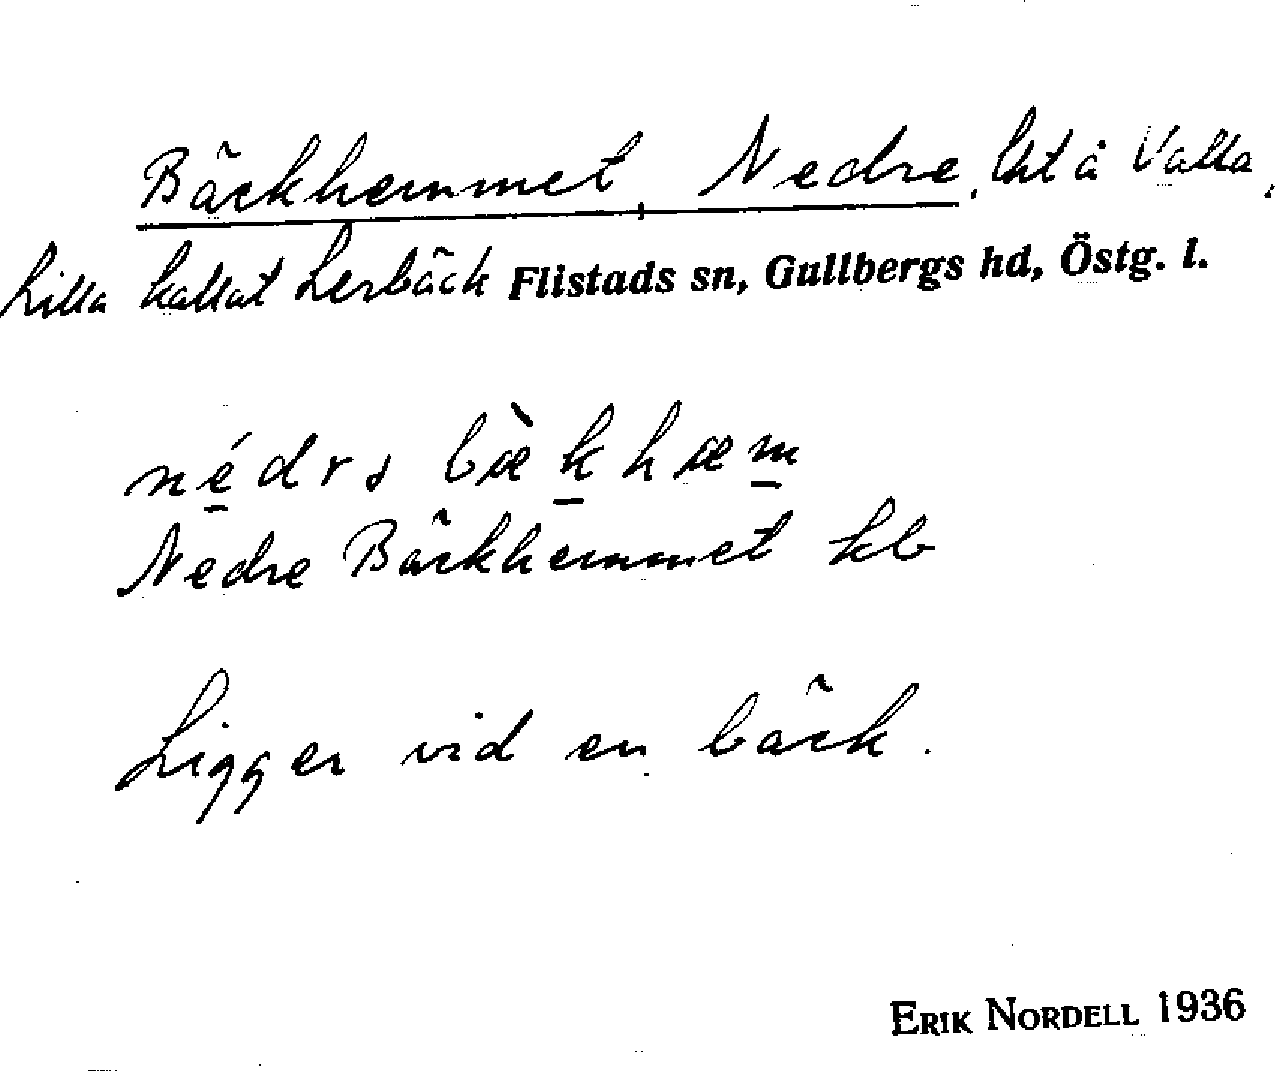 Bäckhemmet, Nedre, lht å Valla,
Lilla kallat Lerbäck Flistads sn, Gullbergs hd, Östg. l.
nédrə bæ̀khæm
Nedre Bäckhemmet kb
Ligger vid en bäck.
ERIK NORDELL 1936